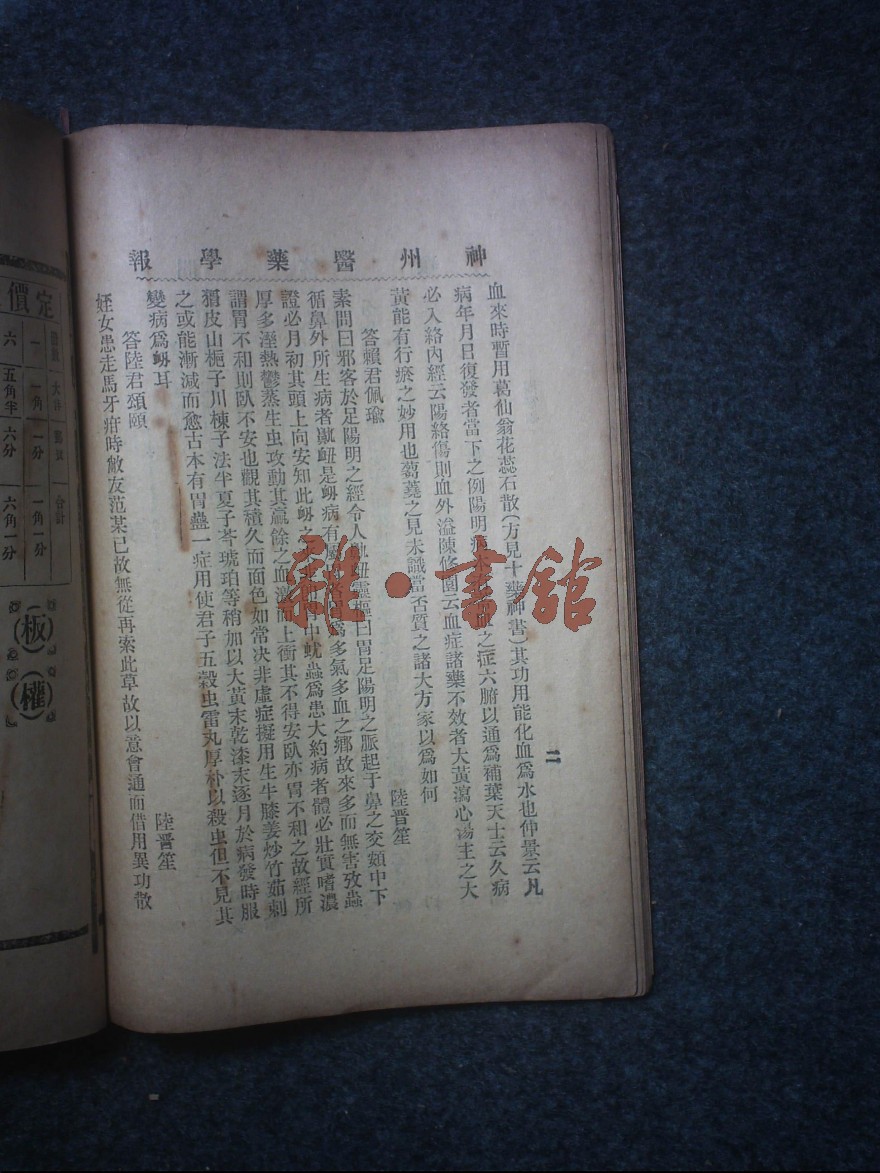 神州醫藥學報
二
血來時暫用葛仙翁花蕊石散(方見十藥神書)其功用能化血爲水也仲景云凡
病年月日復發者當下之例陽明病本血之症六腑以通爲補葉天士云久病
必入絡內經云陽絡傷則血外溢陳修園云血症諸藥不效者大黃瀉心湯主之大
黃能有行瘀之妙用也蒭蕘之見未識當否質之諸大方家以爲如何
答賴君佩瑜
陸晋笙
素問曰邪客於足陽明之經令人鼽衄靈樞曰胃足陽明之脈起于鼻之交頞中下
循鼻外所生病者鼽衄是衂病有屬爲多氣多血之鄉故來多而無害攷蟲
證必月初其頭上向安知此衂之中蚘蟲爲患大約病者體必壯實嗜濃
厚多溼熱鬱蒸生虫攻動其贏餘之血而上衝其不得安臥亦胃不和之故經所
謂胃不和則臥不安也觀其積久而面色如常决非虛症擬用生牛膝姜炒竹茹刺
猬皮山梔子川楝子法半夏子芩琥珀等稍加以大黃末乾漆末逐月於病發時服
之或能漸減而愈古本有胃蠱一症用使君子五穀虫雷丸厚朴以殺虫但不見其
變病爲衂耳
答陸君頌頤
陸晋笙
姪女患走馬牙疳時敝友范某已故無從再索此草故以意會通而借用異功散
定價
六
一
五角半
一角
六分
一分
合計
六角一分
一角一分
(板)
(權)
雜·書館